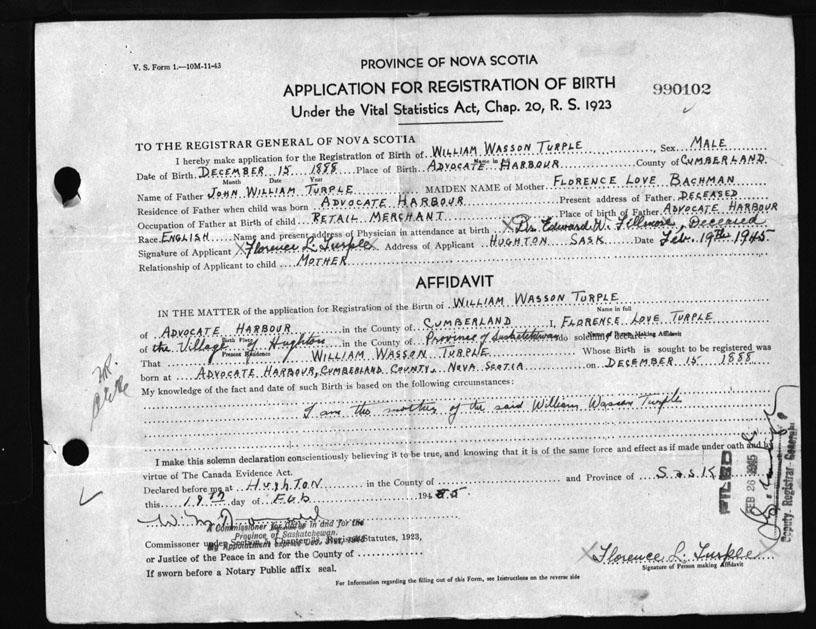 V. S. Form 1.—10M-11-43
PROVINCE OF NOVA SCOTIA
APPLICATION FOR REGISTRATION OF BIRTH
990102
Under the Vital Statistics Act, Chap. 20, R. S. 1923
TO THE REGISTRAR GENERAL OF NOVA SCOTIA
I hereby make application for the Registration of Birth of WILLIAM WASSON TURPLE, Sex MALE
Name in full
Date of Birth DECEMBER 15 1888 Place of Birth ADVOCATE HARBOUR County of CUMBERLAND
Month Date Year
Name of Father JOHN WILLIAM TURPLE MAIDEN NAME of Mother FLORENCE LOVE BACHMAN
Residence of Father when child was born ADVOCATE HARBOUR Present address of Father DECEASED
Occupation of Father at Birth of child RETAIL MERCHANT Place of birth of Father ADVOCATE HARBOUR
Race ENGLISH Name and present address of Physician in attendance at birth X Dr. Edward W. Fillmore, Deceased
Signature of Applicant X Florence L. Turple X Address of Applicant HUGHTON SASK Date Feb. 19th 1945
Relationship of Applicant to child MOTHER
AFFIDAVIT
IN THE MATTER of the application for Registration of the Birth of WILLIAM WASSON TURPLE
Name in full
of ADVOCATE HARBOUR in the County of CUMBERLAND I, FLORENCE LOVE TURPLE
Birth Place Name of Person Making Affidavit
of the Village of Hughton in the County of Province of Saskatchewan do solemnly declare:
Present Residence
That WILLIAM WASSON TURPLE Whose Birth is sought to be registered was
born at ADVOCATE HARBOUR, CUMBERLAND COUNTY, NOVA SCOTIA on DECEMBER 15 1888
My knowledge of the fact and date of such Birth is based on the following circumstances:
I am the mother of the said William Wasson Turple
I make this solemn declaration conscientiously believing it to be true, and knowing that it is of the same force and effect as if made under oath and by
virtue of The Canada Evidence Act.
Declared before me at HUGHTON in the County of and Province of Sask
this 19th day of Feb 194
A Commissioner for Oaths in and for the
Province of Saskatchewan.
My Appointment expires Dec. 31st,
Commissoner under Section Chapter Revised Statutes, 1923,
or Justice of the Peace in and for the County of
If sworn before a Notary Public affix seal.
X Florence L. Turple X
Signature of Person making Affidavit
For Information regarding the filling out of this Form, see Instructions on the reverse side
FILED
FEB 26 1945
Deputy Registrar General